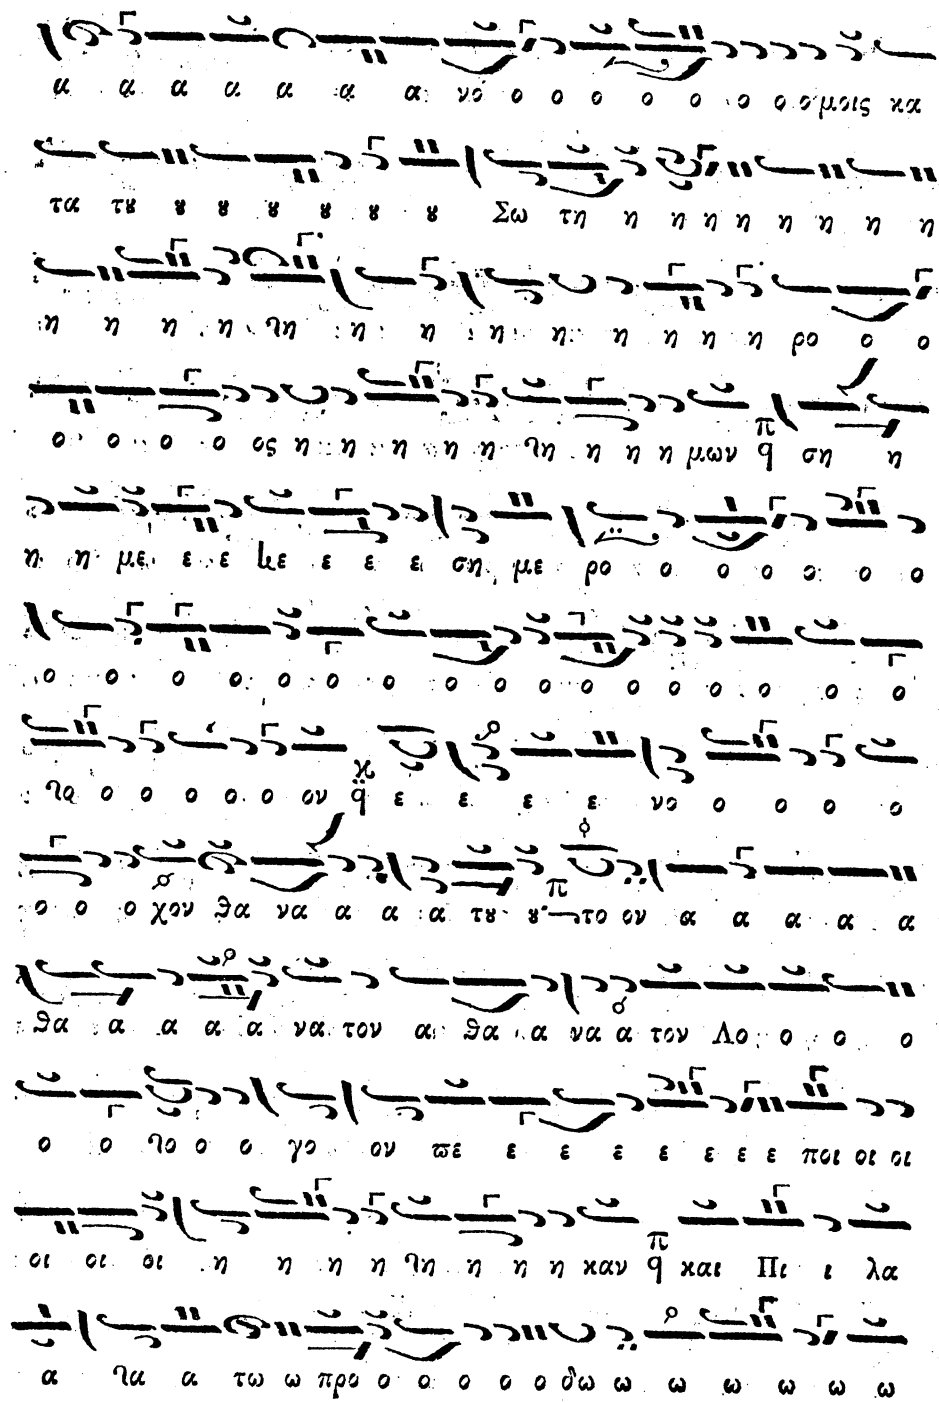 α α α α α α α νο ο ο ο ο ο ο ο ο μοις κα
τα τȣ ȣ ȣ ȣ ȣ ȣ ȣ Σω τη η η η η η η η η
η η η η η η η η η η η η η ρο ο ο
ο ο ο ο ος η η η η η η η η η μων q̈ ση η
η η με ε ε με ε ε ε ση με ρο ο ο ο ο ο ο
ο ο ο ο ο ο ο ο ο ο ο ο ο ο ο ο ο
ο ο ο ο ο ο ον q̈ ε ε ε ε νο ο ο ο ο
ο ο ο χον θα να α α α τȣ ȣ το ον α α α α α
θα α α α α να τον α θα α να α τον Λο ο ο ο
ο ο ο ο ο γο ον ϖε ε ε ε ε ε ε ε ποι οι οι
οι οι οι η η η η η η η η καν q και Πι ι λα
α α α τω ω προ ο ο ο ο ο δω ω ω ω ω ω ω